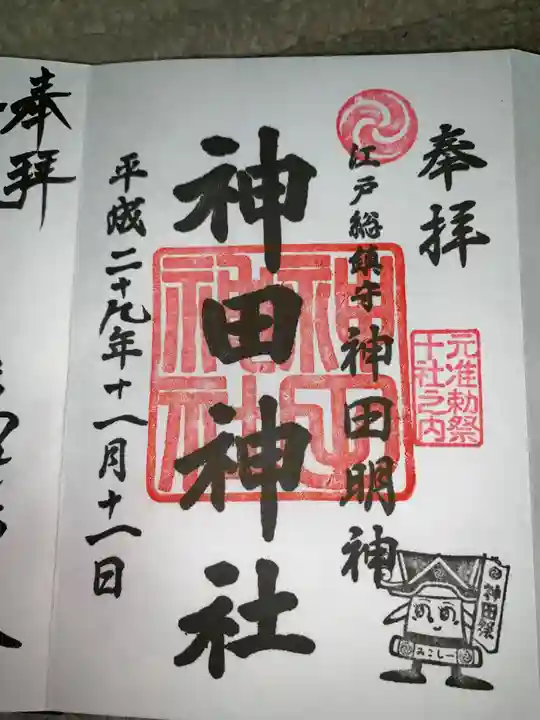 奉拝
江戸総鎮守神田明神
元准勅祭
十社之内
神田神社
神田神社
平成二十九年十一月十一日
神田祭
みこしー
奉拝